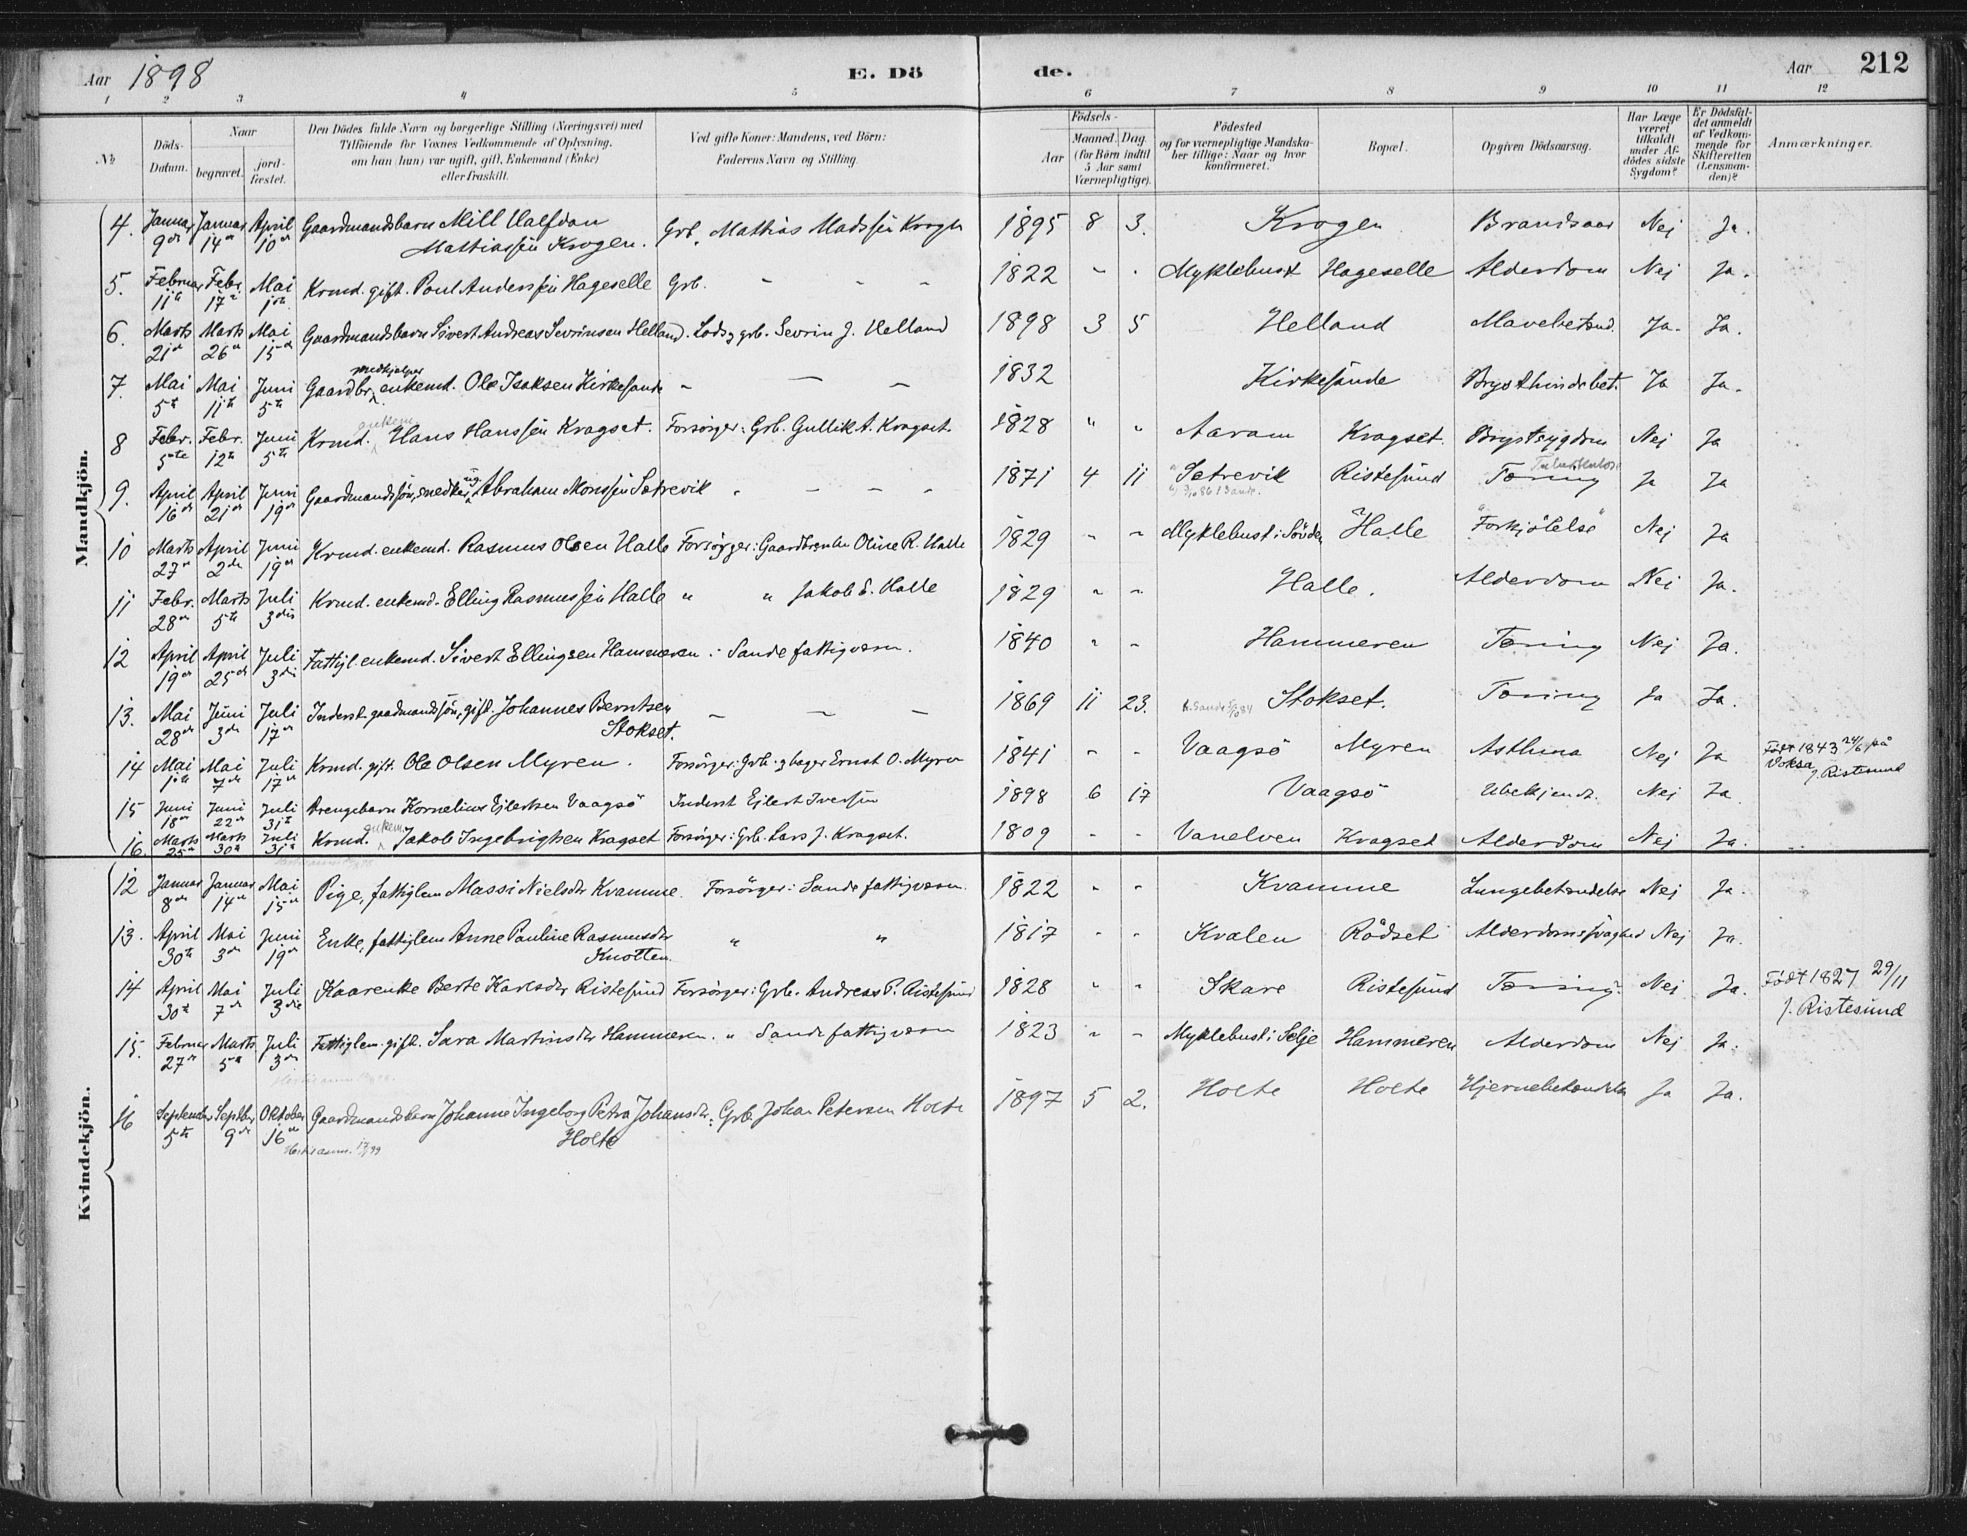 Aar 1898 E. Döde. Aar 212
1 2 3 4 5 6 7 8 9 10 11 12
№ Döds-Datum. Naar begravet. jordfæstet. Den Dödes fulde Navn og borgerlige Stilling (Næringsvei) med Tilföiende for Voxnes Vedkommende af Oplysning, om han (hun) var ugift, gift, Enkemand (Enke) eller fraskilt. Ved gifte Koner: Mandens, ved Börn: Faderens Navn og Stilling. Födsels- Aar Maaned. Dag. (for Börn indtil 5 Aar samt Værnepligtige). Födested og for værnepligtige Mandskaber tillige: Naar og hvor konfirmeret. Bopæl. Opgiven Dödsaarsag. Har Læge været tilkaldt under Afdödes sidste Sygdom? Er Dödsfaldet anmeldt af Vedkommende for Skifteretten (Lensmanden)? Anmærkninger.
Mandkjön.
4. Januar 9de Januar 14de April 10de Gaardmandsbarn Mill Halfdan Mathiassen Krogen. Grb. Mathias Madssen Krogen 1895 8 3. Krogen Brandsaar Nej Ja.
5. Februar 11te Febr. 17de Mai 1ste Krmd. gift. Poul Anderssen Hageselle Grb. - - - 1822 - - Myklebust Hageselle Alderdom Nej Ja.
6. Marts 21de Marts 26de Mai 15de Gaardmandsbarn Sivert Andreas Sevrinsen Helland. Lods, grb. Sevrin J. Helland 1898 3 5 Helland Mavebetænd. Ja. Ja.
7. Mai 5te Mai 11te Juni 5te Gaardbr. medhjelper enkemd. Ole Isaksen Kirkesande - - - 1832 Kirkesande Brysthindebet. Ja Ja.
8 Febr. 5te Febr. 12te Juni 5te Krmd. enkem. Hans Hanssen Kragset. Forsörger: Grb. Gullik A. Kragset 1828 " " Aaram Kragset. Brystsygdom Nej Ja
9. April 16de April 21de Juni 19de Gaardmandssön, snedker, ug. Abraham Monssen Sætrevik - - - - 1871 4 11 Setrevik Ristesund Tæring Tuberkulose Ja Ja
10 Marts 27de April 2den Juni 19de Krmd. enkemd. Rasmus Olsen Halle Forsörger: Gaardbr.enke Oline R. Halle 1829 - - Myklebust i Sövden Halle "Forkjölelse" Nej Ja
11 Febr. 28de Marts 5te Juli 3die Krmd. enkemd. Elling Rasmussen Halle " " Jakob E. Halle 1829 - - Halle. Alderdom Nej Ja.
12 April 19de April 25de Juli 3die Fattigl. enkemd. Sivert Ellingsen Hammeren : Sande fattigvæsen. 1840 - - Hammeren Tæring Nej Ja.
13. Mai 28de Juni 3die Juli 17de Inderst. gaardmandssön, gift. Johannes Berntsen Stokset. - - - 1869 11 23. Stokset. Tæring Ja Ja.
14 Mai 1ste Mai 7de Juli 17de Krmd. gift. Ole Olsen Myren. Forsörger: Grb. & bager Ernst O. Myren 1841 - - Vaagsö Myren Asthma Nej Ja Födt 1843 24/6 på Voksa J. Ristesund
15 Juni 18de Juni 22de Juli 31te Drengebarn Kornelius Ejlertsen Vaagsö Inderst Ejlert Iversen 1898 6 17 Vaagsö Ubekjendt. Nej Ja.
16. Marts 25de Marts 30de Juli 31te Krmd. enkem. Jakob Ingebrigtsen Kragset Forsörger: Grb. Lars J. Kragset. 1809 - - Vanelven Kragset Alderdom Nej Ja. - -
Kvindekjön.
12 Januar 8de Januar 14de Mai 15de Pige, fattiglem Massi Nielsdtr Kvamme. Forsörger: Sande fattigvæsen. 1822 - - Kvamme Lungebetændelse Nej Ja.
13. April 30te Mai 3die Juni 19de Enke, fattiglem Anne Pauline Rasmusdtr Knotten. " " 1817 - - Kvalen Rödset Alderdomssvaghed Nej Ja.
14 April 30te Mai 7de Juli 3die Kaarenke Berte Karlsdtr Ristesund Forsörger: Grb. Andreas P. Ristesund 1828 " - Skare Ristesund Tæring. Nej Ja. Födt 1827 29/11 J. Ristesund
15. Februar 27de Marts 5te Juli 3die Fattiglem. gift. Sara Martinsdtr Hammeren. " Sande fattigvæsen 1823 - - Myklebust i Selje Hammeren Alderdom Nej Ja.
16 September 5te Septbr 9de Oktober 16de Gaardmandsbarn Johanne Ingeborg Petra Johansdtr. Holte Grb. Johan Petersen Holte 1897 5 2. Holte Holte Hjernebetændelse Ja Ja.